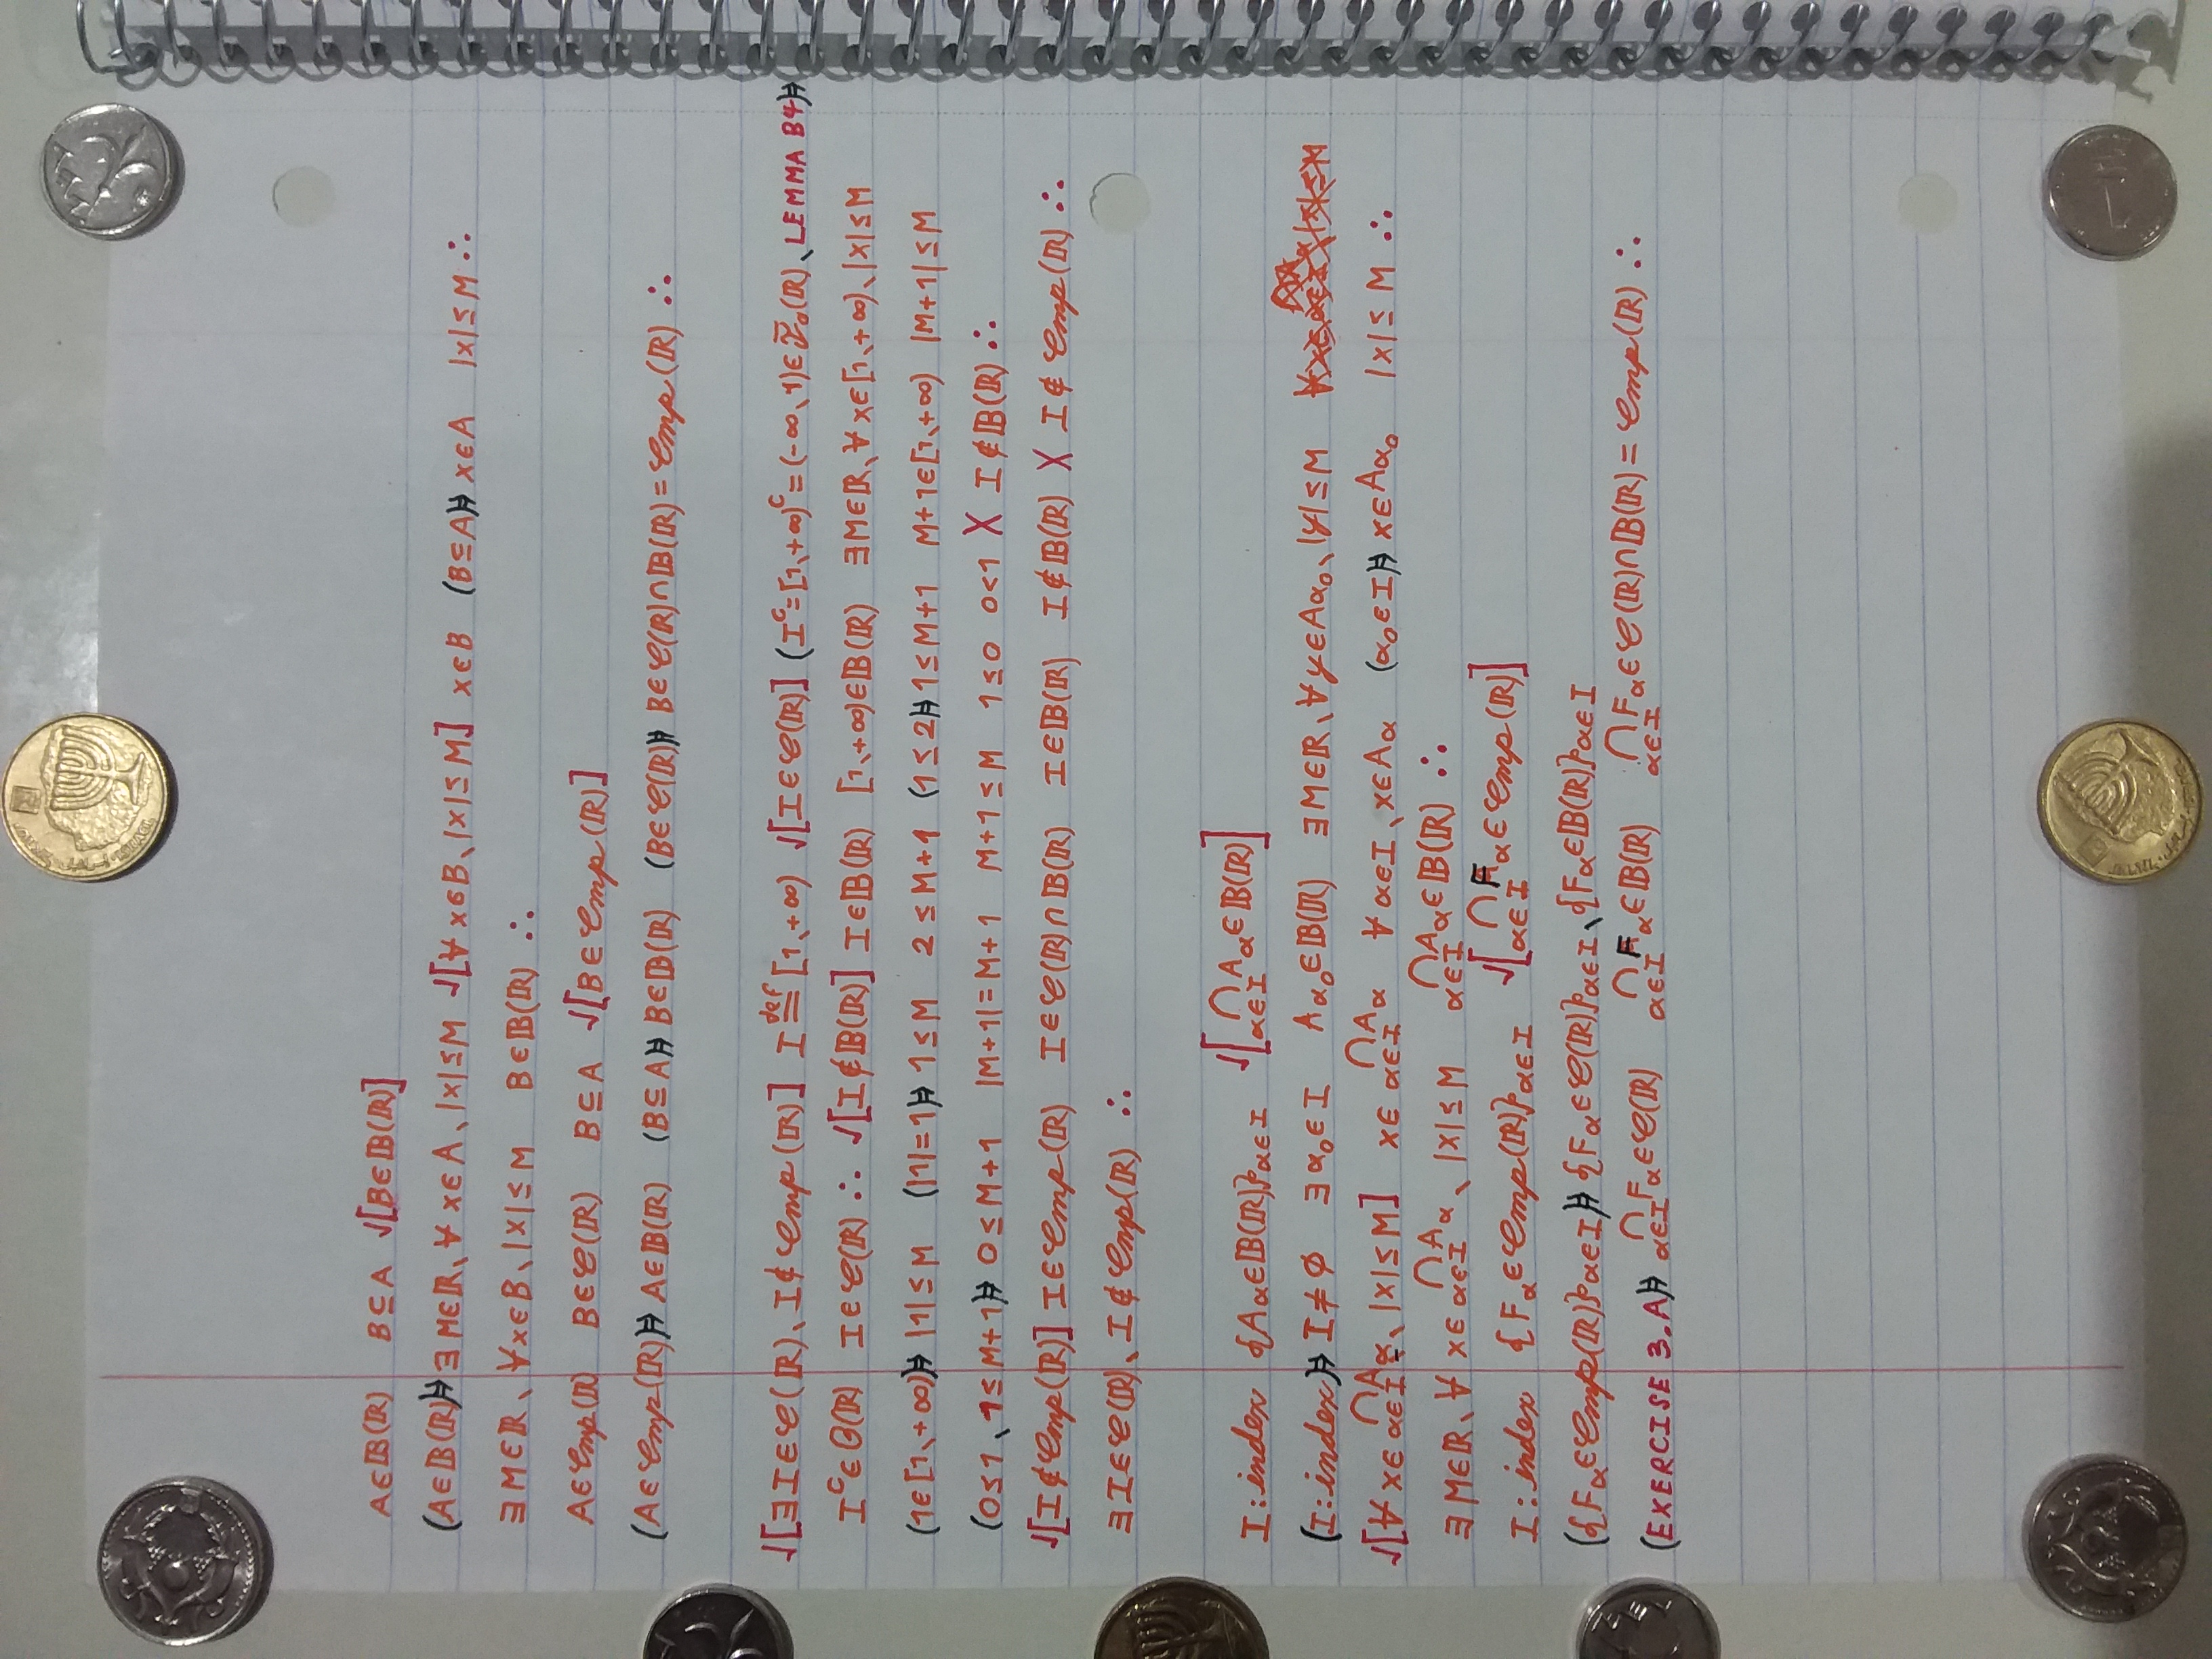 A∈𝔹(ℝ) B⊆A √[B∈𝔹(ℝ)]
(A∈𝔹(ℝ)⊫ ∃M∈ℝ、∀x∈A、|x|≤M √[∀x∈B、|x|≤M] x∈B (B⊆A⊫ x∈A |x|≤M ∴
∃M∈ℝ、∀x∈B、|x|≤M B∈𝔹(ℝ) ∴
A∈𝒞mp(ℝ) B∈𝒞(ℝ) B⊆A √[B∈𝒞mp(ℝ)]
(A∈𝒞mp(ℝ)⊫ A∈𝔹(ℝ) (B⊆A⊫ B∈𝔹(ℝ) (B∈𝒞(ℝ)⊫ B∈𝒞(ℝ)∩𝔹(ℝ)=𝒞mp(ℝ) ∴
√[∃I∈𝒞(ℝ)、I∉𝒞mp(ℝ)] I ≝ [1、+∞) √[I∈𝒞(ℝ)] (Iᶜ=[1、+∞)ᶜ=(-∞、1)∈ (ℝ)、LEMMA B4⊫
Iᶜ∈Θ(ℝ) I∈𝒞(ℝ) ∴ √[I∉𝔹(ℝ)] I∈𝔹(ℝ) [1、+∞)∈𝔹(ℝ) ∃M∈ℝ、∀x∈[1、+∞)、|x|≤M
(1∈[1、+∞)⊫ |1|≤M (|1|=1⊫ 1≤M 2≤M+1 (1≤2⊫ 1≤M+1 M+1∈[1、+∞) |M+1|≤M
(0≤1、1≤M+1⊫ 0≤M+1 |M+1|=M+1 M+1≤M 1≤0 0<1 X I∉𝔹(ℝ) ∴
√[I∉𝒞mp(ℝ)] I∈𝒞mp(ℝ) I∈𝒞(ℝ)∩𝔹(ℝ) I∈𝔹(ℝ) I∉𝔹(ℝ) X I∉𝒞mp(ℝ) ∴
∃I∈𝒞(ℝ)、I∉𝒞mp(ℝ) ∴
I:index {Aα∈𝔹(ℝ)}α∈I √[∩α∈I Aα∈𝔹(ℝ)]
(I:index⊫ I≠∅ ∃α₀∈I Aα₀∈𝔹(ℝ) ∃M∈ℝ、∀y∈Aα₀、|y|≤M
√[∀x∈∩α∈I Aα、|x|≤M] x∈∩α∈I Aα ∀α∈I、x∈Aα (α₀∈I⊫ x∈Aα₀ |x|≤M ∴
∃M∈ℝ、∀x∈∩α∈I Aα、|x|≤M ∩α∈I Aα∈𝔹(ℝ) ∴
I:index {Fα∈𝒞mp(ℝ)}α∈I √[∩α∈I Fα∈𝒞mp(ℝ)]
({Fα∈𝒞mp(ℝ)}α∈I⊫ {Fα∈𝒞(ℝ)}α∈I、{Fα∈𝔹(ℝ)}α∈I
(EXERCISE 3.A⊫ ∩α∈I Fα∈𝒞(ℝ) ∩α∈I Fα∈𝔹(ℝ) ∩α∈I Fα∈𝒞(ℝ)∩𝔹(ℝ)=𝒞mp(ℝ) ∴